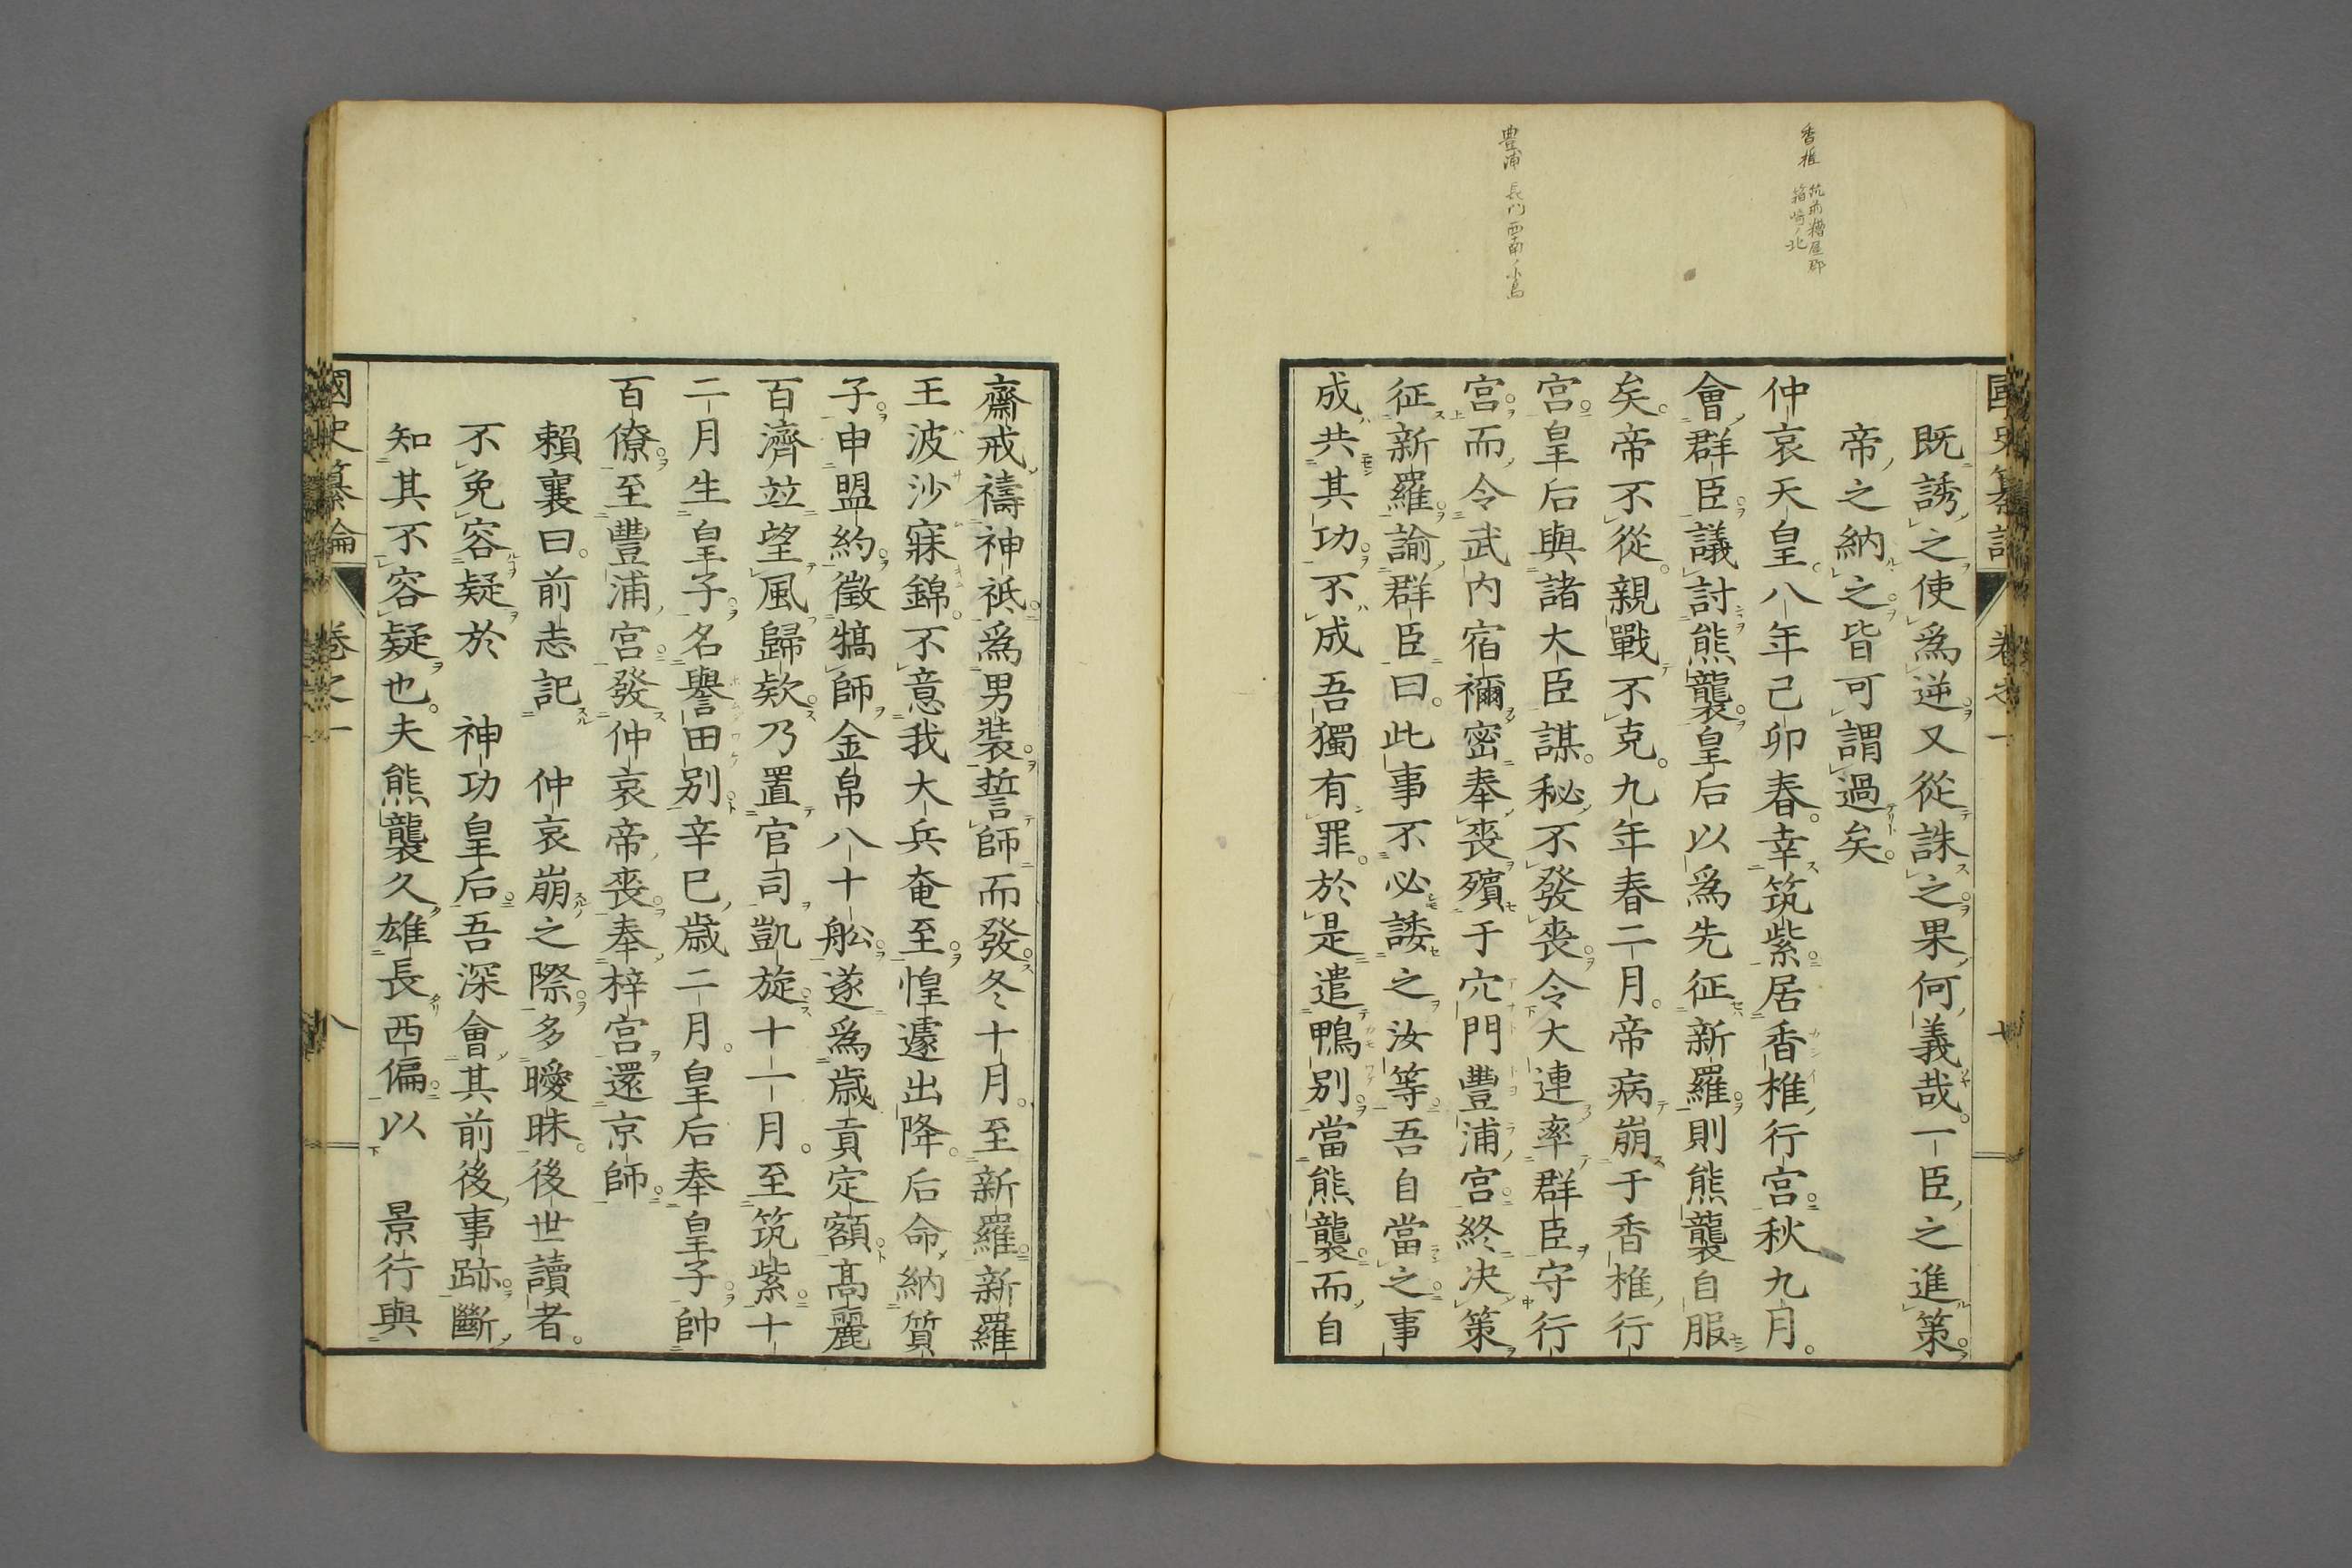 香椎 筑前糟屋郡
箱崎ノ北
豊浦 長門西南ノ小島
國史纂論 卷之一 七
既誘之使爲逆又從誅之果何義哉一臣之進策
帝之納之皆可謂過矣。
仲哀天皇。八年己卯春。幸筑紫居香椎行宮秋九月。
會群臣議討熊襲皇后以爲先征新羅則熊襲自服
矣。帝不從。親戰不克。九年春二月。帝病崩于香椎行
宮皇后與諸大臣謀。秘不發喪令大連率群臣守行
宮而令武内宿禰密奉喪殯于穴門豐浦宮終决策
征新羅諭群臣曰。此事不必諉之汝等吾自當之事
成共其功不成吾獨有罪。於是遣鴨別當熊襲而自
齋戒禱神祇爲男裝誓師而發冬十月。至新羅新羅
王波沙寐錦。不意我大兵奄至惶遽出降。后命納質
子申盟約徵犒師金帛八十舩遂爲歳貢定額高麗
百濟竝望風歸欵乃置官司凱旋十一月。至筑紫十
二月生皇子名譽田別辛巳歳二月。皇后奉皇子帥
百僚至豐浦宮發仲哀帝喪奉梓宮還京師
賴襄曰。前志記 仲哀崩之際多曖昧。後世讀者。
不免容疑於 神功皇后吾深會其前後事跡斷
知其不容疑也。夫熊襲久雄長西偏以 景行與
國史纂論 卷之一 八